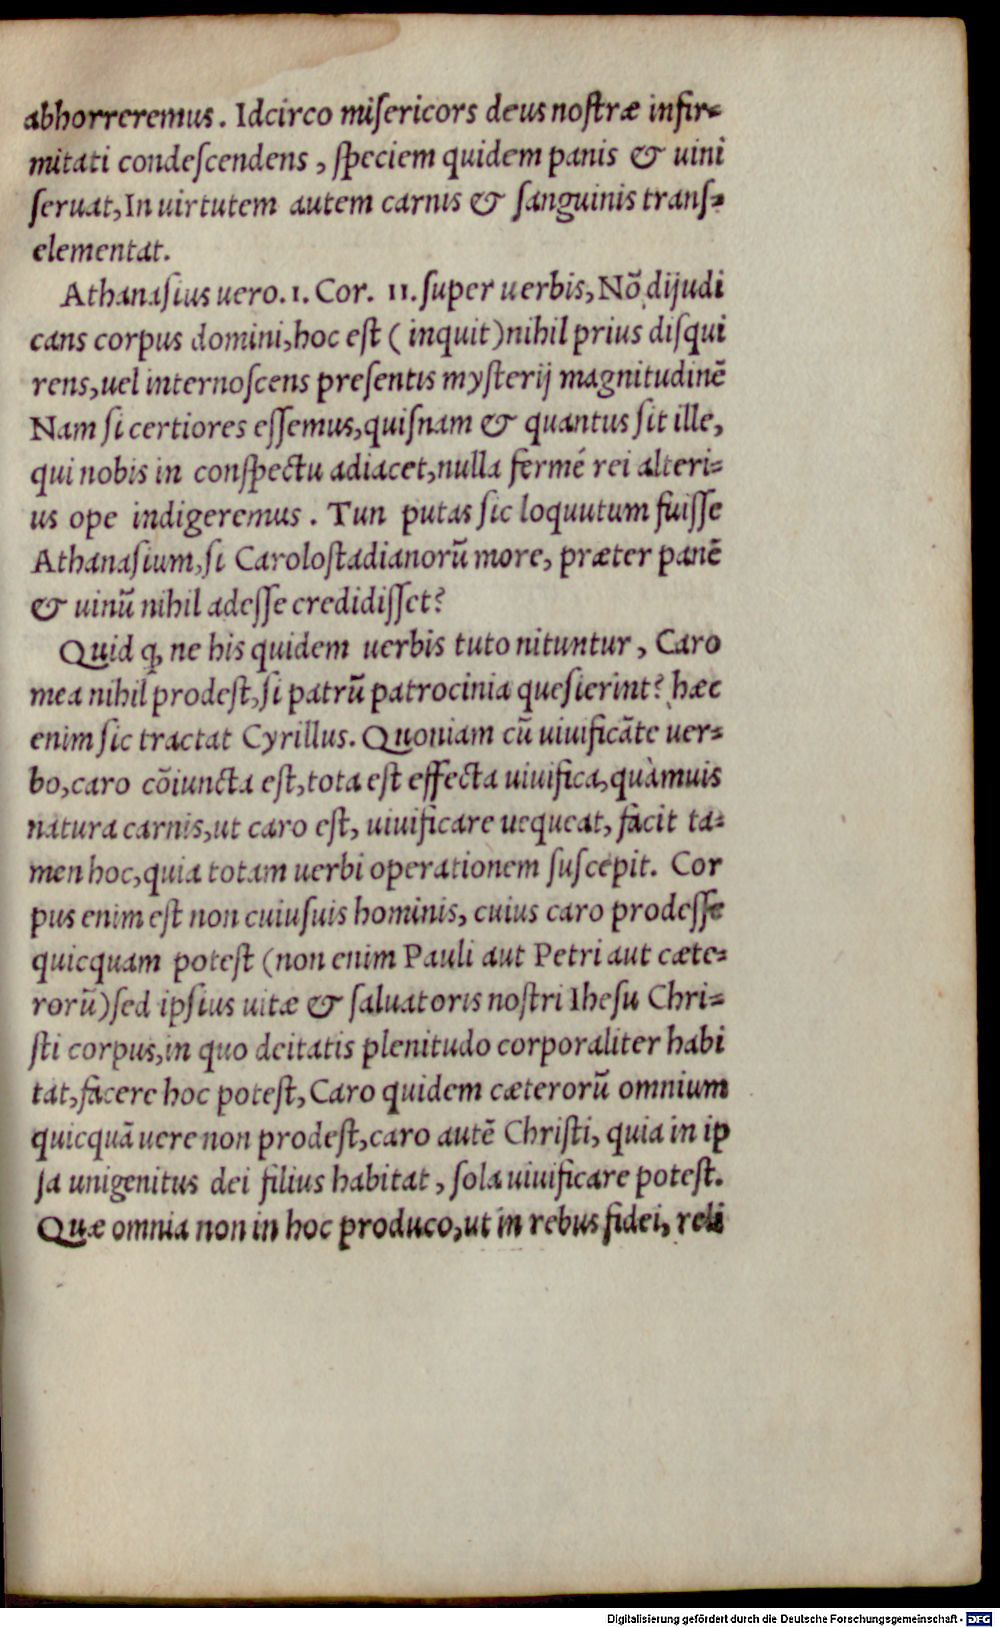 abhorreremus. Idcirco miſericors deus noſtræ infir-
mitati condeſcendens, ſpeciem quidem panis & uini
ſeruat, In uirtutem autem carnis & ſanguinis tranſ-
elementat.
Athanaſius uero. 1. Cor. 11. ſuper uerbis, Nõ dijudi
cans corpus domini, hoc eſt ( inquit ) nihil prius diſqui
rens, uel internoſcens preſentis myſterij magnitudinẽ
Nam ſi certiores eſſemus, quiſnam & quantus ſit ille,
qui nobis in conſpectu adiacet, nulla fermé rei alteri-
us ope indigeremus. Tun putas ſic loquutum fuiſſe
Athanaſium, ſi Caroloſtadianorũ more, præter panẽ
& uinũ nihil adeſſe credidiſſet?
Quid ꝙ ne his quidem uerbis tuto nituntur, Caro
mea nihil prodeſt, ſi patrũ patrocinia queſierint? hæc
enim ſic tractat Cyrillus. Quoniam cũ uiuificãte uer-
bo, caro cõiuncta eſt, tota eſt effecta uiuifica, quàmuis
natura carnis, ut caro eſt, uiuificare uequeat, facit ta-
men hoc, quia totam uerbi operationem ſuſcepit. Cor
pus enim eſt non cuiuſuis hominis, cuius caro prodeſſe
quicquam poteſt (non enim Pauli aut Petri aut cæte-
rorũ) ſed ipſius uitæ & ſaluatoris noſtri Iheſu Chri-
ſti corpus, in quo deitatis plenitudo corporaliter habi
tat, facere hoc poteſt, Caro quidem cæterorũ omnium
quicquã uere non prodeſt, caro autẽ Chriſti, quia in ip
ſa unigenitus dei filius habitat, ſola uiuificare poteſt.
Quæ omnia non in hoc produco, ut in rebus fidei, reli
Digitalisierung gefördert durch die Deutsche Forschungsgemeinschaft - DFG